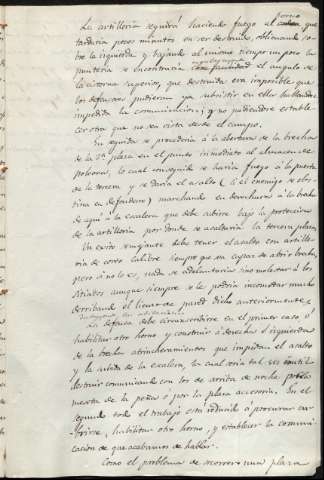 La artillería seguirá haciendo fuego al horno que
tardaría pocos minutos en ser destruido, oblicuando so-
bre la izquierda y bajando al mismo tiempo un poco la
puntería se encontraría el angulo de
la cisterna superior, que destruida era imposible que
los defensores pudieran ya subsistir en ella hallandose
impedida la comunicacion; y no pudiendose estable-
cer otra que no sea vista desde el campo.
En seguida se procedería á la abertura de la brecha
de la 2ª plaza en el punto inmediato al almacen de
polvora, lo cual conseguido se haria fuego á la puerta
de la tercera y se daria el asalto (si el enemigo se obs-
tina en defenderse) marchando en derechura á la brecha
de aqui á la escalera que debe abrirse bajo la proteccion
de la artillería por donde se asaltaría la tercera plaza.
Un exito semejante debe tener el asalto con artille-
ria de corto calibre siempre que sea capaz de abrir brecha,
pero si no lo es, nada se adelantaria sino molestar á los
sitiados aunque siempre se le podria incomodar mucho
derribando el lienzo de pared dicho anteriormente.
La defensa debe circunscribirse en el primer caso á
habilitar otro horno y construir á derecha é izquierda
de la brecha atrincheramientos que impidan el asalto
y la subida de la escalera, la cual seria tal vez util
destruir comunicando con los de arriba de noche
de la peña ó por la plaza accesoria. En el
segundo todo el trabajo está reducido á procurar cu-
brirse, habilitar otro horno, y establecer la comuni-
cacion de que acabamos de hablar.
Como el problema de socorrer una plaza